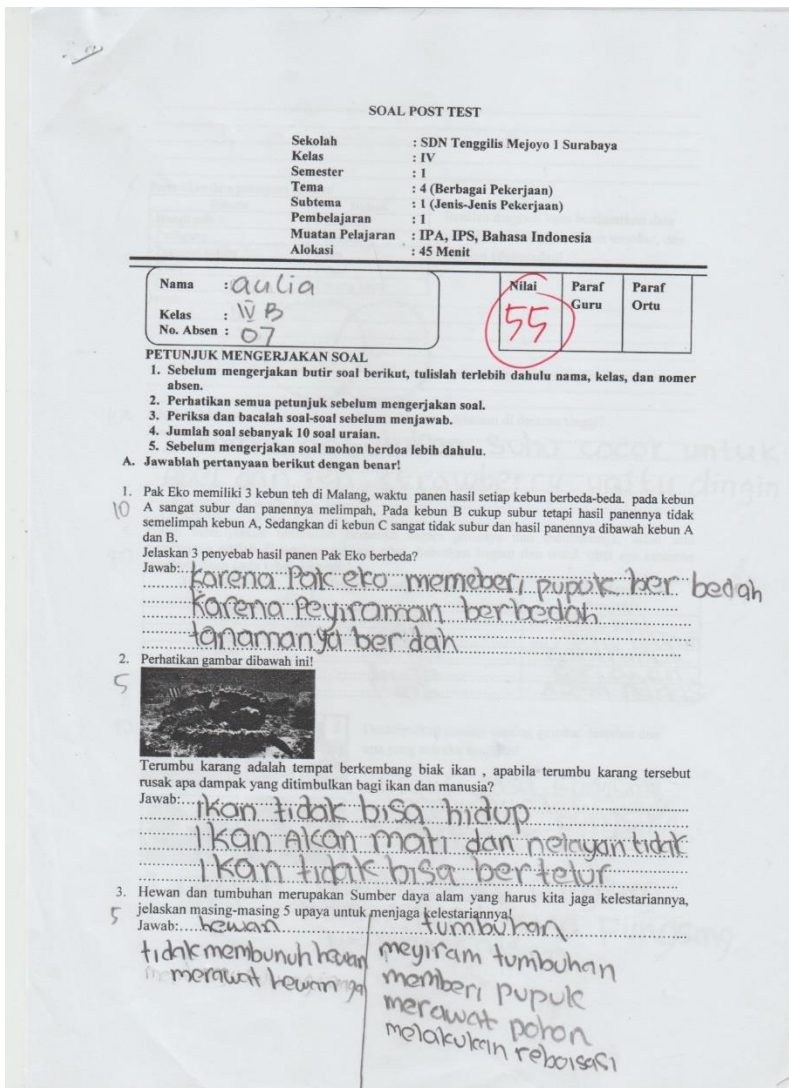 SOAL POST TEST
Sekolah : SDN Tenggilis Mejoyo 1 Surabaya
Kelas : IV
Semester : 1
Tema : 4 (Berbagai Pekerjaan)
Subtema : 1 (Jenis-Jenis Pekerjaan)
Pembelajaran : 1
Muatan Pelajaran : IPA, IPS, Bahasa Indonesia
Alokasi : 45 Menit
Nama : aulia
Kelas : IV B
No. Absen : 07
Nilai
55
Paraf Guru
Paraf Ortu
PETUNJUK MENGERJAKAN SOAL
1. Sebelum mengerjakan butir soal berikut, tulislah terlebih dahulu nama, kelas, dan nomer
absen.
2. Perhatikan semua petunjuk sebelum mengerjakan soal.
3. Periksa dan bacalah soal-soal sebelum menjawab.
4. Jumlah soal sebanyak 10 soal uraian.
5. Sebelum mengerjakan soal mohon berdoa lebih dahulu.
A. Jawablah pertanyaan berikut dengan benar!
1. Pak Eko memiliki 3 kebun teh di Malang, waktu panen hasil setiap kebun berbeda-beda. pada kebun
10 A sangat subur dan panennya melimpah, Pada kebun B cukup subur tetapi hasil panennya tidak
semelimpah kebun A, Sedangkan di kebun C sangat tidak subur dan hasil panennya dibawah kebun A
dan B.
Jelaskan 3 penyebab hasil panen Pak Eko berbeda?
Jawab: karena Pak eko memeberi pupuk ber bedah
karena Peyiraman berbedah
tanamanya ber dah
2. Perhatikan gambar dibawah ini!
5
Terumbu karang adalah tempat berkembang biak ikan , apabila terumbu karang tersebut
rusak apa dampak yang ditimbulkan bagi ikan dan manusia?
Jawab: ikan tidak bisa hidup
Ikan Akan mati dan nelayan tidak
Ikan tidak bisa bertelur
3. Hewan dan tumbuhan merupakan Sumber daya alam yang harus kita jaga kelestariannya,
5 jelaskan masing-masing 5 upaya untuk menjaga kelestariannya!
Jawab: hewan
tidak membunuh hewan
merawat hewannya
tumbuhan
meyiram tumbuhan
memberi pupuk
merawat pohon
melakukan reboisasi